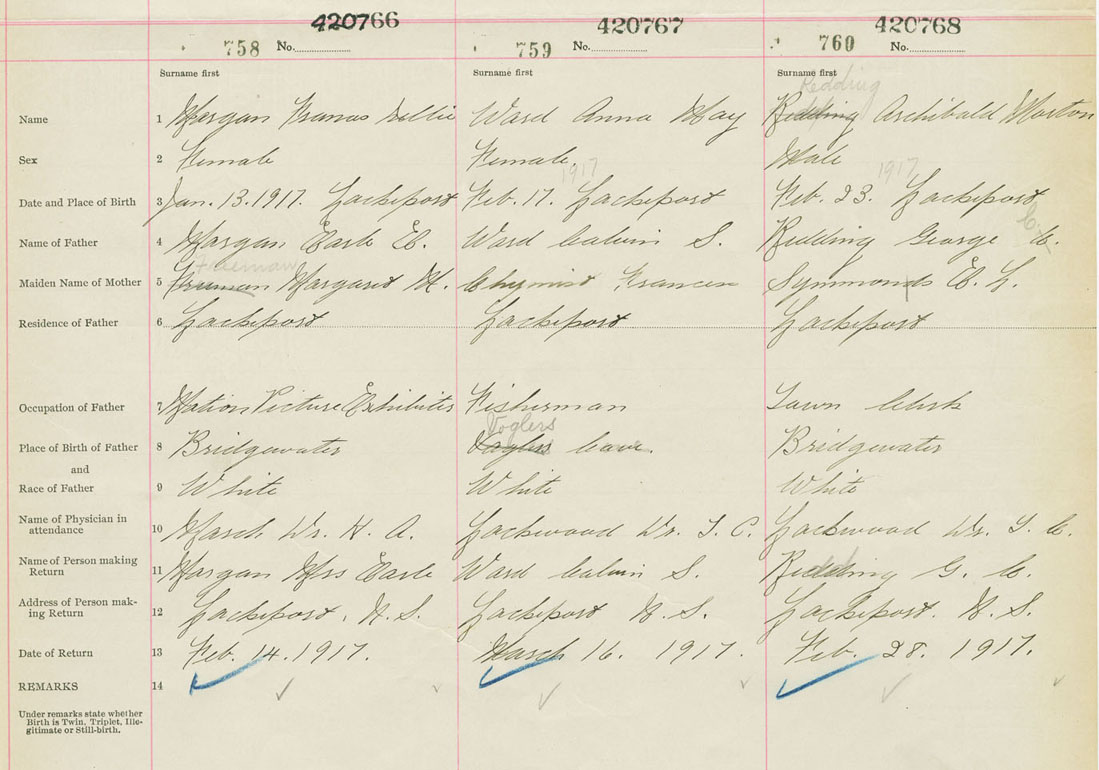 420766 420767 420768
758 No. 759 No. 760 No.
Surname first Surname first Surname first
Redding
Name 1 Morgan Frances Nellie Ward Anna May Redding Archibald Morton
Sex 2 Female Female Male
1917 1917
Date and Place of Birth 3 Jan. 13. 1917. Lockeport Feb. 17. Lockeport Feb. 23. Lockeport
Name of Father 4 Morgan Earle E. Ward Calvin S. Redding George C.
Freeman
Maiden Name of Mother 5 Freeman Margaret H. Chymist Frances Symmonds E. L.
Residence of Father 6 Lockeport Lockeport Lockeport
Occupation of Father 7 Motion Picture Exhibitor Fisherman Town Clerk
Voglers
Place of Birth of Father 8 Bridgewater Voglers Cove. Bridgewater
and
Race of Father 9 White White White
Name of Physician in
attendance 10 March Dr. H. A. Lockwood Dr. T. C. Lockwood Dr. T. C.
Name of Person making
Return 11 Morgan Mrs Earle Ward Calvin S. Redding G. C.
Address of Person mak-
ing Return 12 Lockeport, N. S. Lockeport N. S. Lockeport. N. S.
Date of Return 13 Feb. 14. 1917. March 16. 1917. Feb. 28. 1917.
REMARKS 14
Under remarks state whether
Birth is Twin, Triplet, Ille-
gitimate or Still-birth.